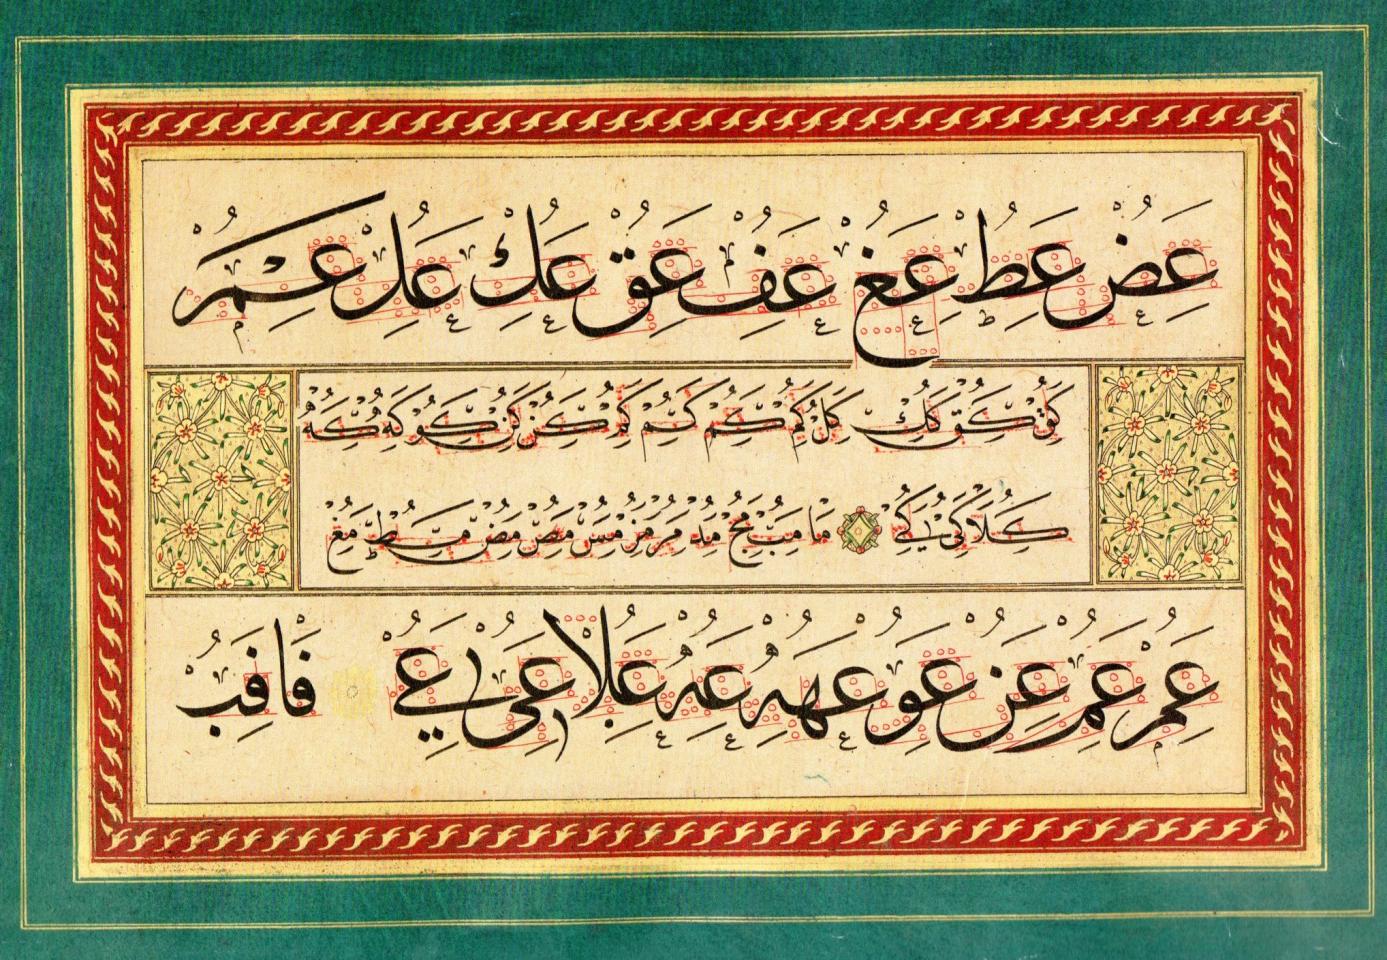 عض عط عغ عف عق عك عل عم
كق كق كك كل كم كم كم كم كن كن كو كه كه
كلا كى كي ما مب مج مد مر مز مس مص مض مط مغ
عم عم عن عو عهه عه علا عى عي فا فب